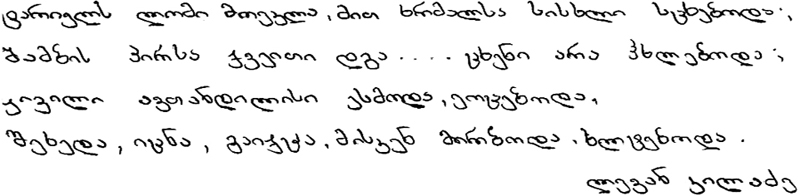 ტარიელს ლომი მოეკლა, მით ხრმალსა სისხლი სცხებოდა;
შამბის პირსა ქვეითი დგა .... ცხენი არა ჰხლებოდა;
კივილი ავთანდილისი ესმოდა, ეოცებოდა,
შეხედა, იცნა, გაიჭრა, მისკენ მირბოდა, ხლტებოდა.
ლევან კილაძე